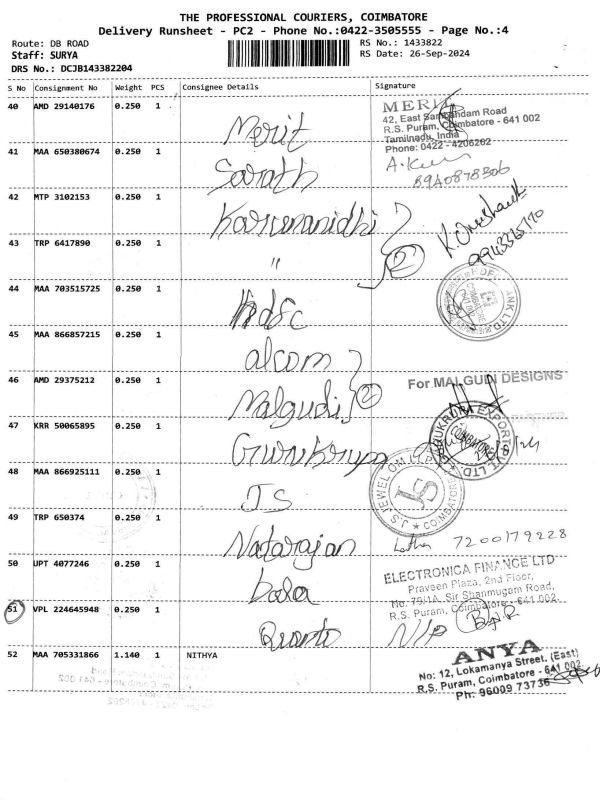 THE PROFESSIONAL COURIERS, COIMBATORE
Delivery Runsheet - PC2 - Phone No.:0422-3505555 - Page No.:4
Route: DB ROAD
RS No.: 1433822
Staff: SURYA
RS Date: 26-Sep-2024
DRS No.: DCJB143382204
S No Consignment No Weight PCS Consignee Details Signature
40 AMD 29140176 0.250 1
Merit
MERIT
42, East Sambandam Road
R.S. Puram, Coimbatore - 641 002
Tamilnadu, India
Phone: 0422 - 4206262
41 MAA 650380674 0.250 1
Sarath
42 MTP 3102153 0.250 1
Karunanidhi
43 TRP 6417890 0.250 1
" 2
44 MAA 703515725 0.250 1
Hdfc
45 MAA 866857215 0.250 1
alcom
46 AMD 29375212 0.250 1
Malgudi 2
For MALGUDI DESIGNS
47 KRR 50065895 0.250 1
Gurukrupa
COIMBATORE
48 MAA 866925111 0.250 1
JS
JS
COIMBATORE
49 TRP 650374 0.250 1
Natarajan
7200179228
50 UPT 4077246 0.250 1
bala
ELECTRONICA FINANCE LTD
Praveen Plaza, 2nd Floor,
No. 79/1A, Sir Shanmugam Road,
R.S. Puram, Coimbatore - 641 002.
51 VPL 224645948 0.250 1
52 MAA 705331866 1.140 1 NITHYA
ANYA
No: 12, Lokamanya Street, (East)
R.S. Puram, Coimbatore - 641 002
Ph: 96009 73736